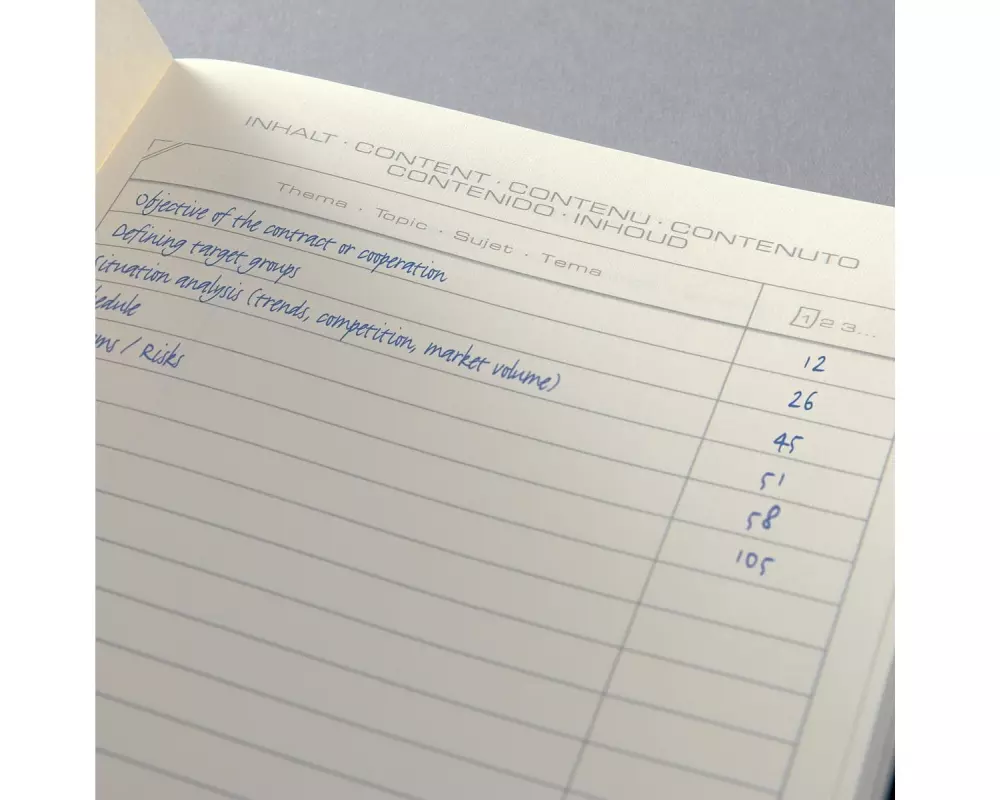 INHALT · CONTENT · CONTENU · CONTENUTO
CONTENIDO · INHOUD
Thema · Topic · Sujet · Tema
1 2 3...
Objective of the contract or cooperation 12
Defining target groups 26
ituation analysis (trends, competition, market volume) 45
edule 51
ms / Risks 58
105